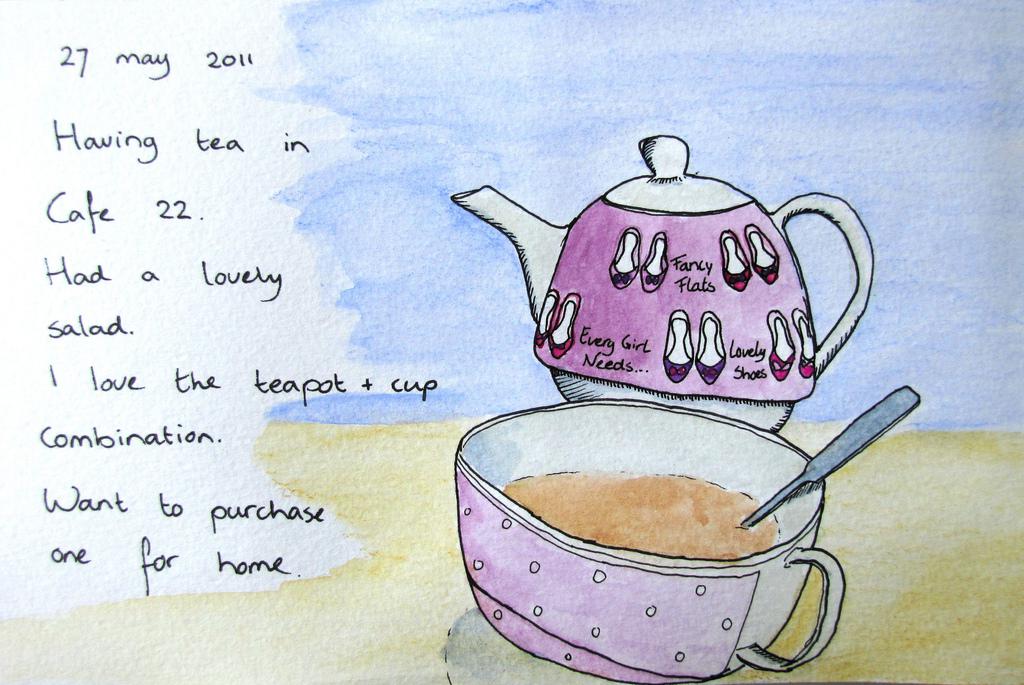 27 may 2011
Having tea in
Cafe 22.
Had a lovely
salad.
I love the teapot + cup
combination.
Want to purchase
one for home.
Fancy
Flats
Every Girl
Needs...
Lovely
Shoes